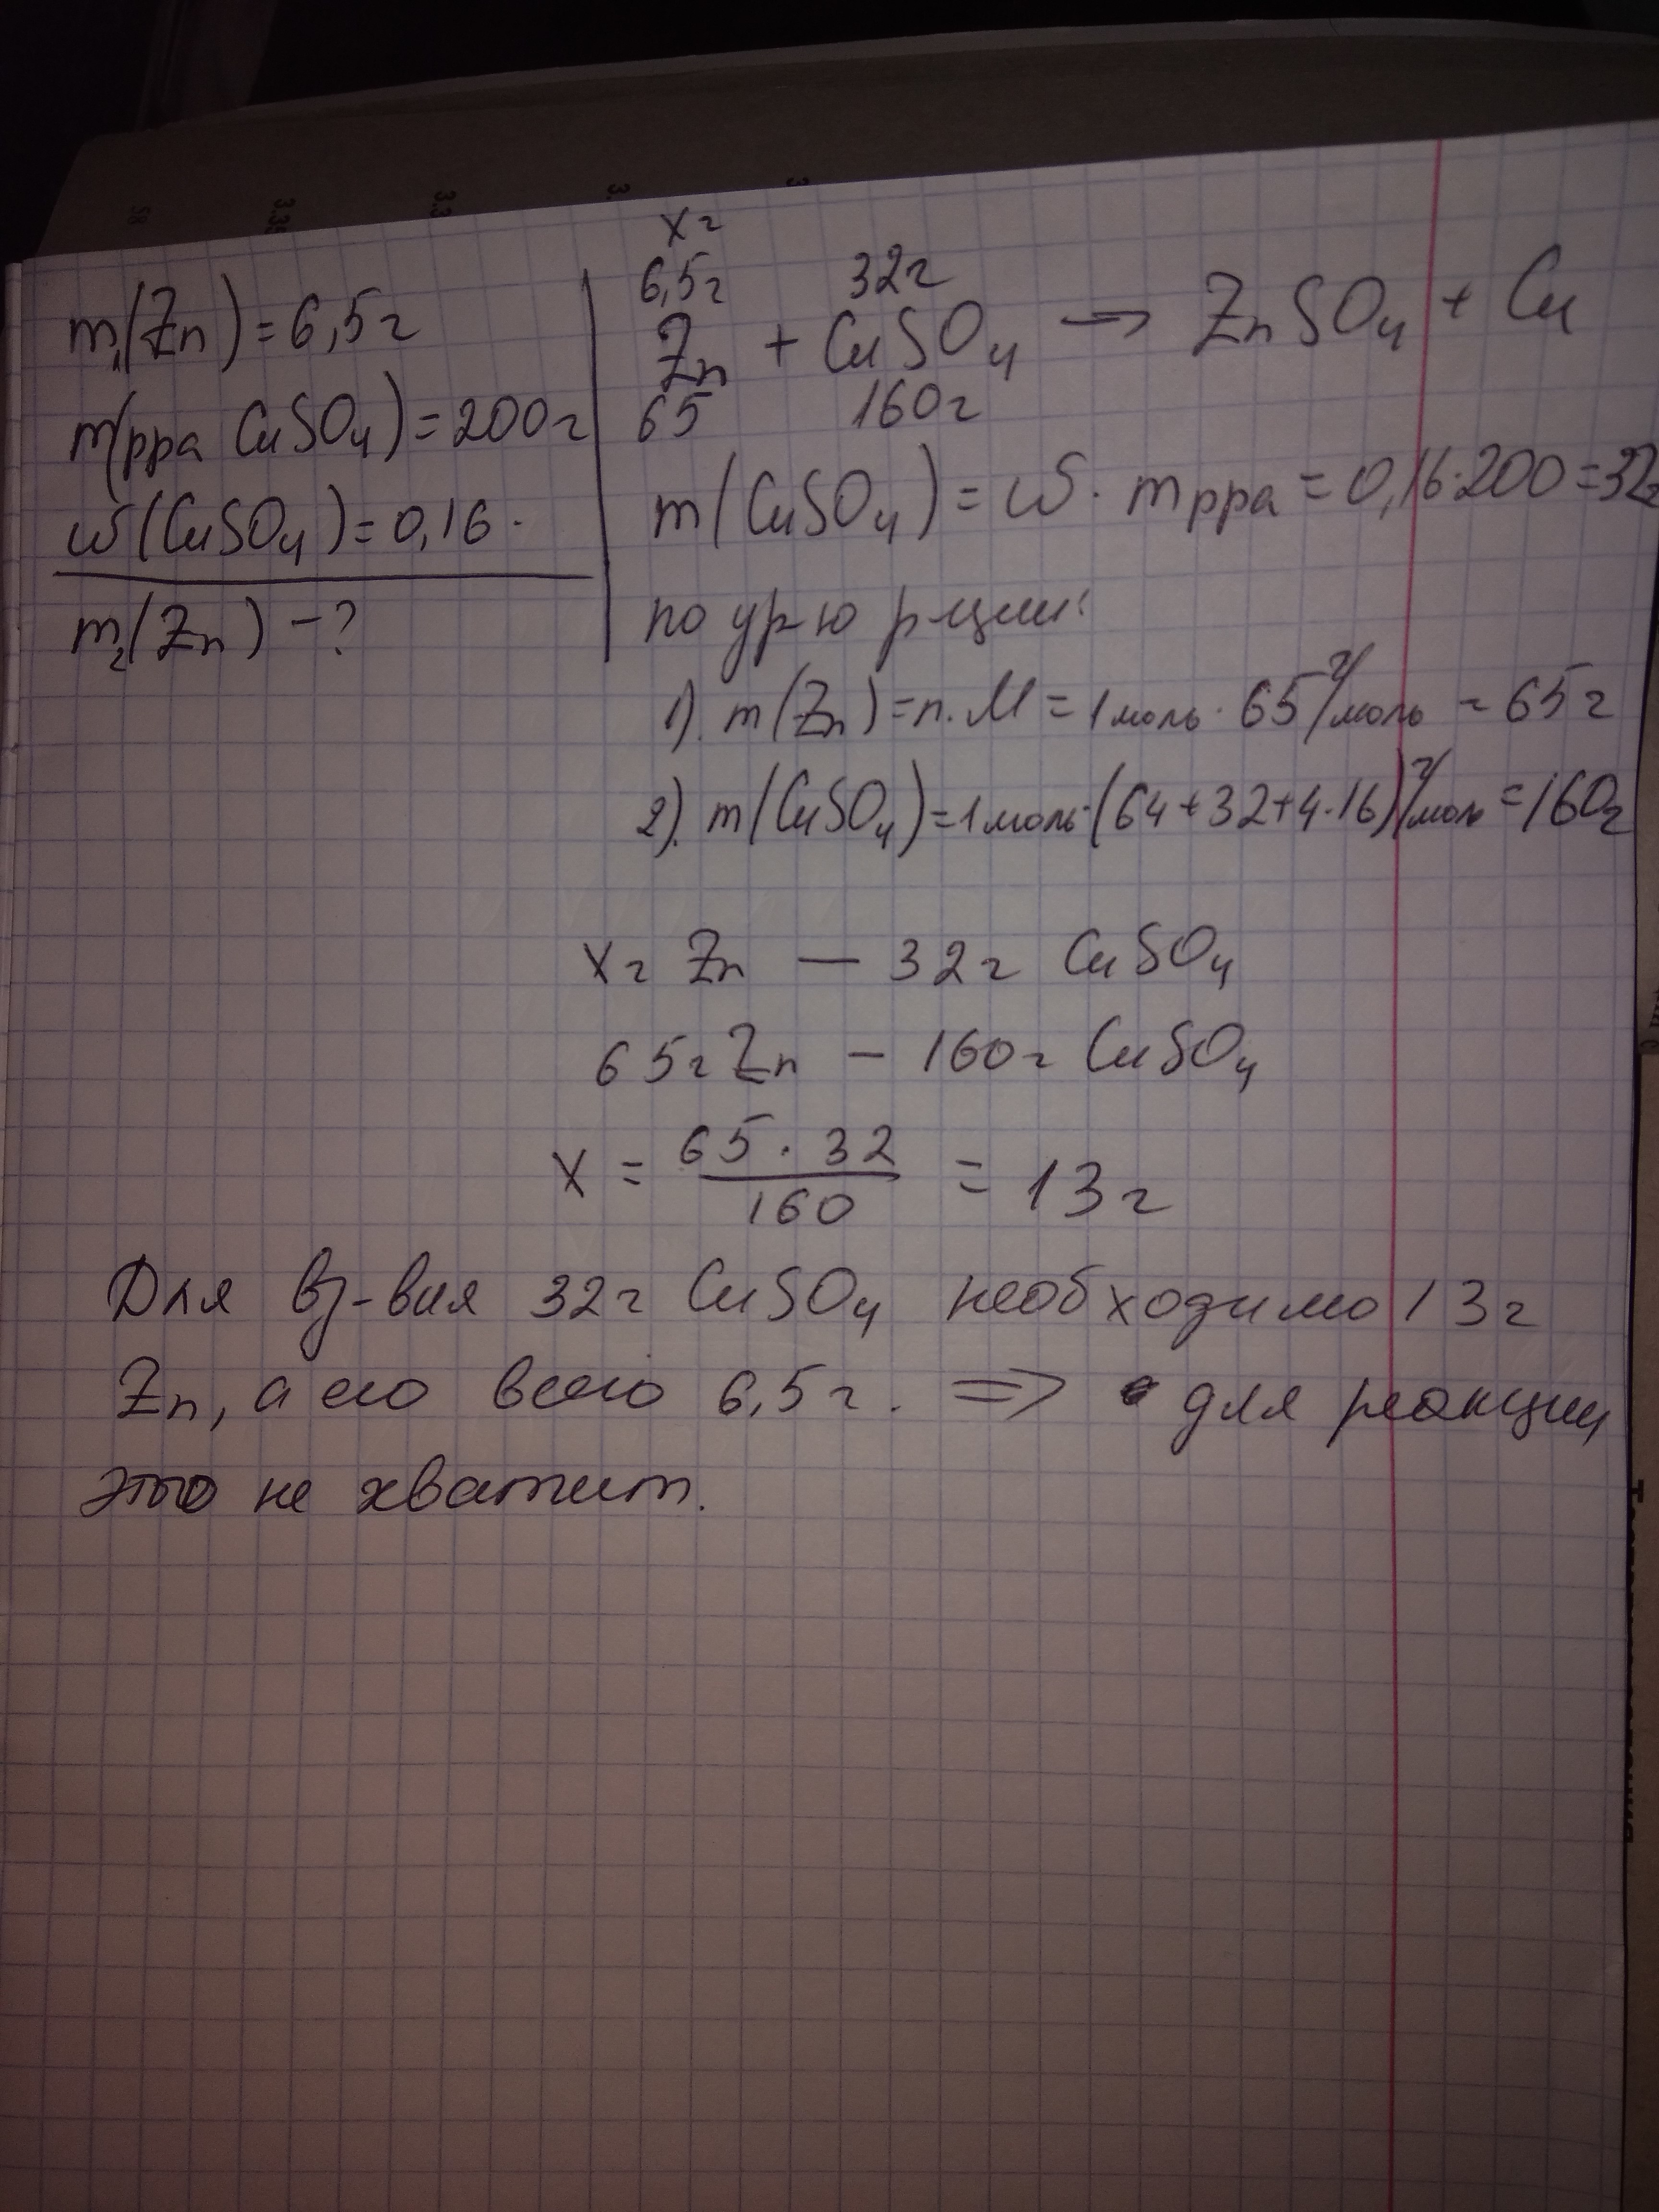 m₁(Zn) = 6,5г
m(рра CuSO₄) = 200г
ω(CuSO₄) = 0,16.
m₂(Zn) – ?
хг
6,5г 32г
Zn + CuSO₄ → ZnSO₄ + Cu
65 160г
m(CuSO₄) = ω · m рра = 0,16·200 = 32г
по ур-ю р-ции:
1). m(Zn) = n·M = 1моль · 65 г/моль = 65г
2). m(CuSO₄) = 1моль·(64+32+4·16) г/моль = 160г
хг Zn — 32г CuSO₄
65г Zn – 160г CuSO₄
х = 65 · 32 / 160 = 13г
Для вз-вия 32г CuSO₄ необходимо 13г
Zn, а его всего 6,5г. ⇒ для реакции
этого не хватит.